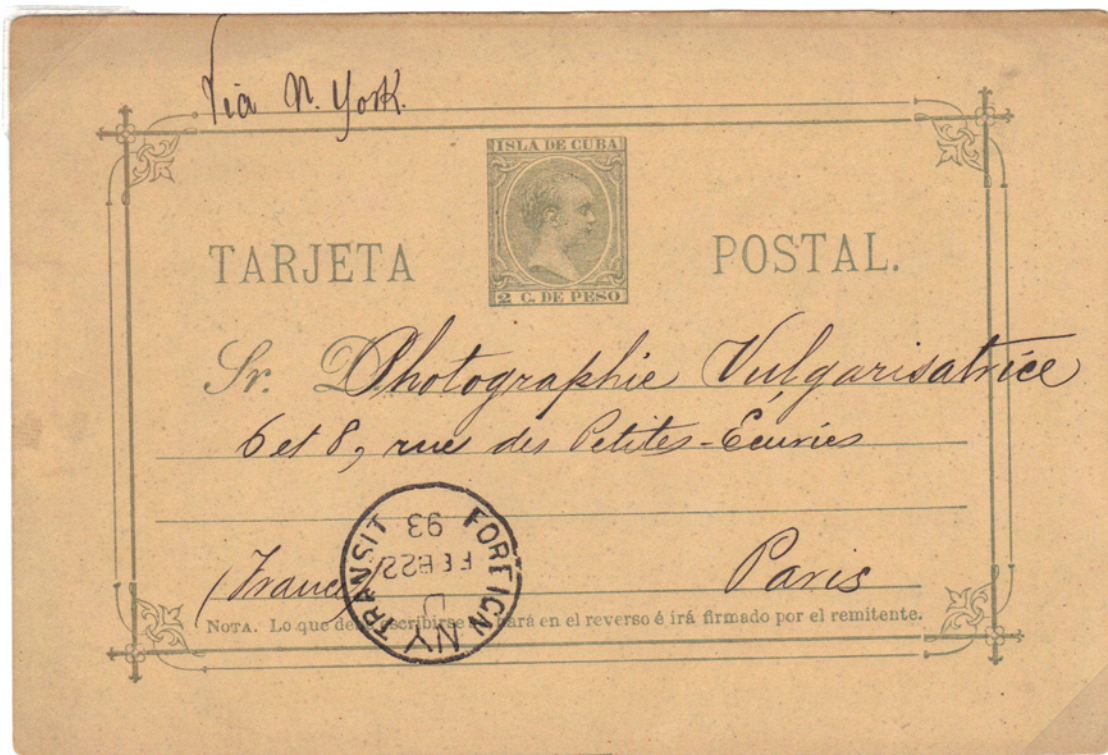 Via N. York.
ISLA DE CUBA
TARJETA POSTAL.
2 C. DE PESO
Sr. D Photographie Vulgarisatrice
6 et 8, rue des Petites-Écuries
(France) Paris
NOTA. Lo que debe escribirse se hará en el reverso é irá firmado por el remitente.
NY FOREIGN TRANSIT
FEB 22
93